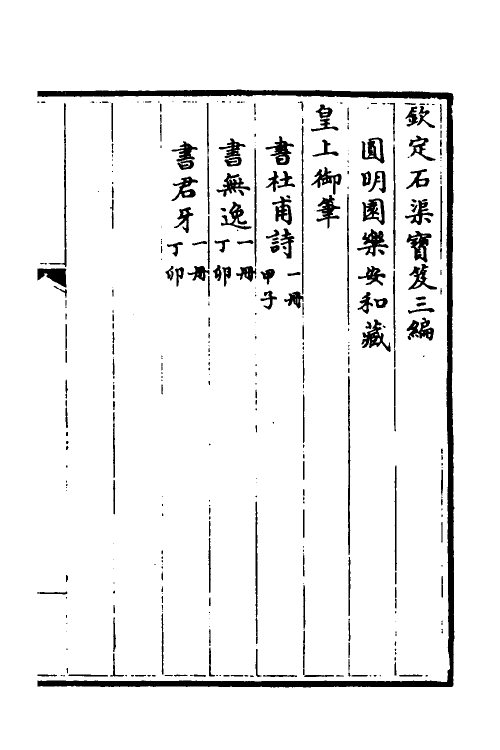 欽定石渠寶笈三編
圓明園樂安和藏
皇上御筆
書杜甫詩一冊甲子
書無逸一冊丁卯
書君牙一冊丁卯